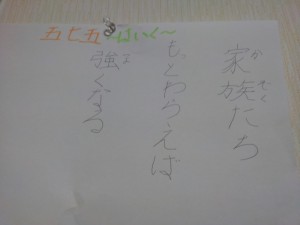 五七五 はいく～
家族たち
もっとわらえば
強くなる